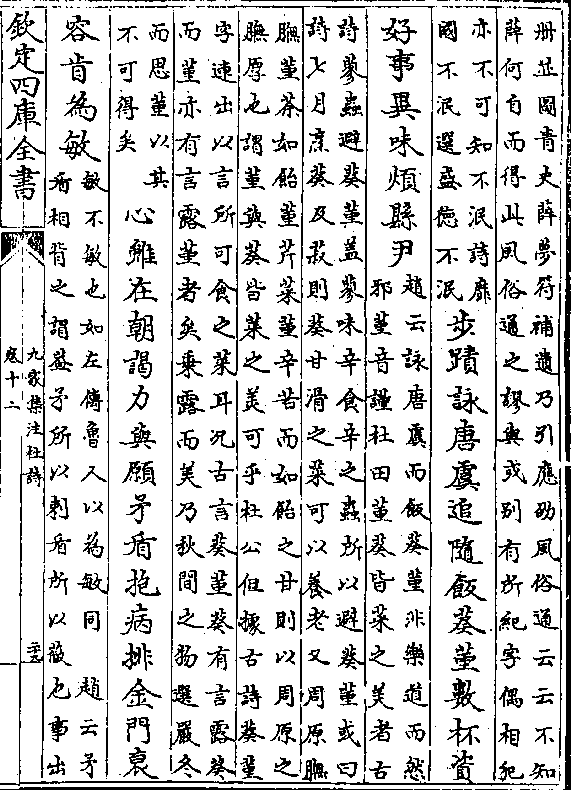 册並闕青史薛夢符補遺乃引應劭風俗通云云不知
薛何自而得此風俗通之謬與或别有所紀字偶相犯
亦不可知不泯詩靡
國不泯選盛徳不泯
步蹟詠唐虞追隨飯葵堇數杯資
好事異味煩縣尹
趙云詠唐虞而飯葵堇非樂道而然
邪堇音謹杜田堇葵皆菜之美者古
詩蓼蟲避葵堇蓋蓼味辛食辛之蟲所以避葵堇或曰
詩七月烹葵及菽則葵甘滑之菜可以養老又周原膴
膴堇荼如飴堇芹菜堇辛苦而如飴之甘則以周原之
膴厚也謂堇與葵皆菜之美可乎杜公但據古詩葵堇
字連出以言所可食之菜耳况古言葵堇葵有言露葵
而堇亦有言露堇者矣乗露而美乃秋間之物選嚴冬
而思堇以其
不可得矣
心雖在朝謁力與願矛盾抱病排金門衰
容肯為敏
敏不敏也如左傳魯人以為敏同 趙云矛
盾相背之謂蓋矛所以刺盾所以蔽也事出
欽定四庫全書
九家集注杜詩
卷十二